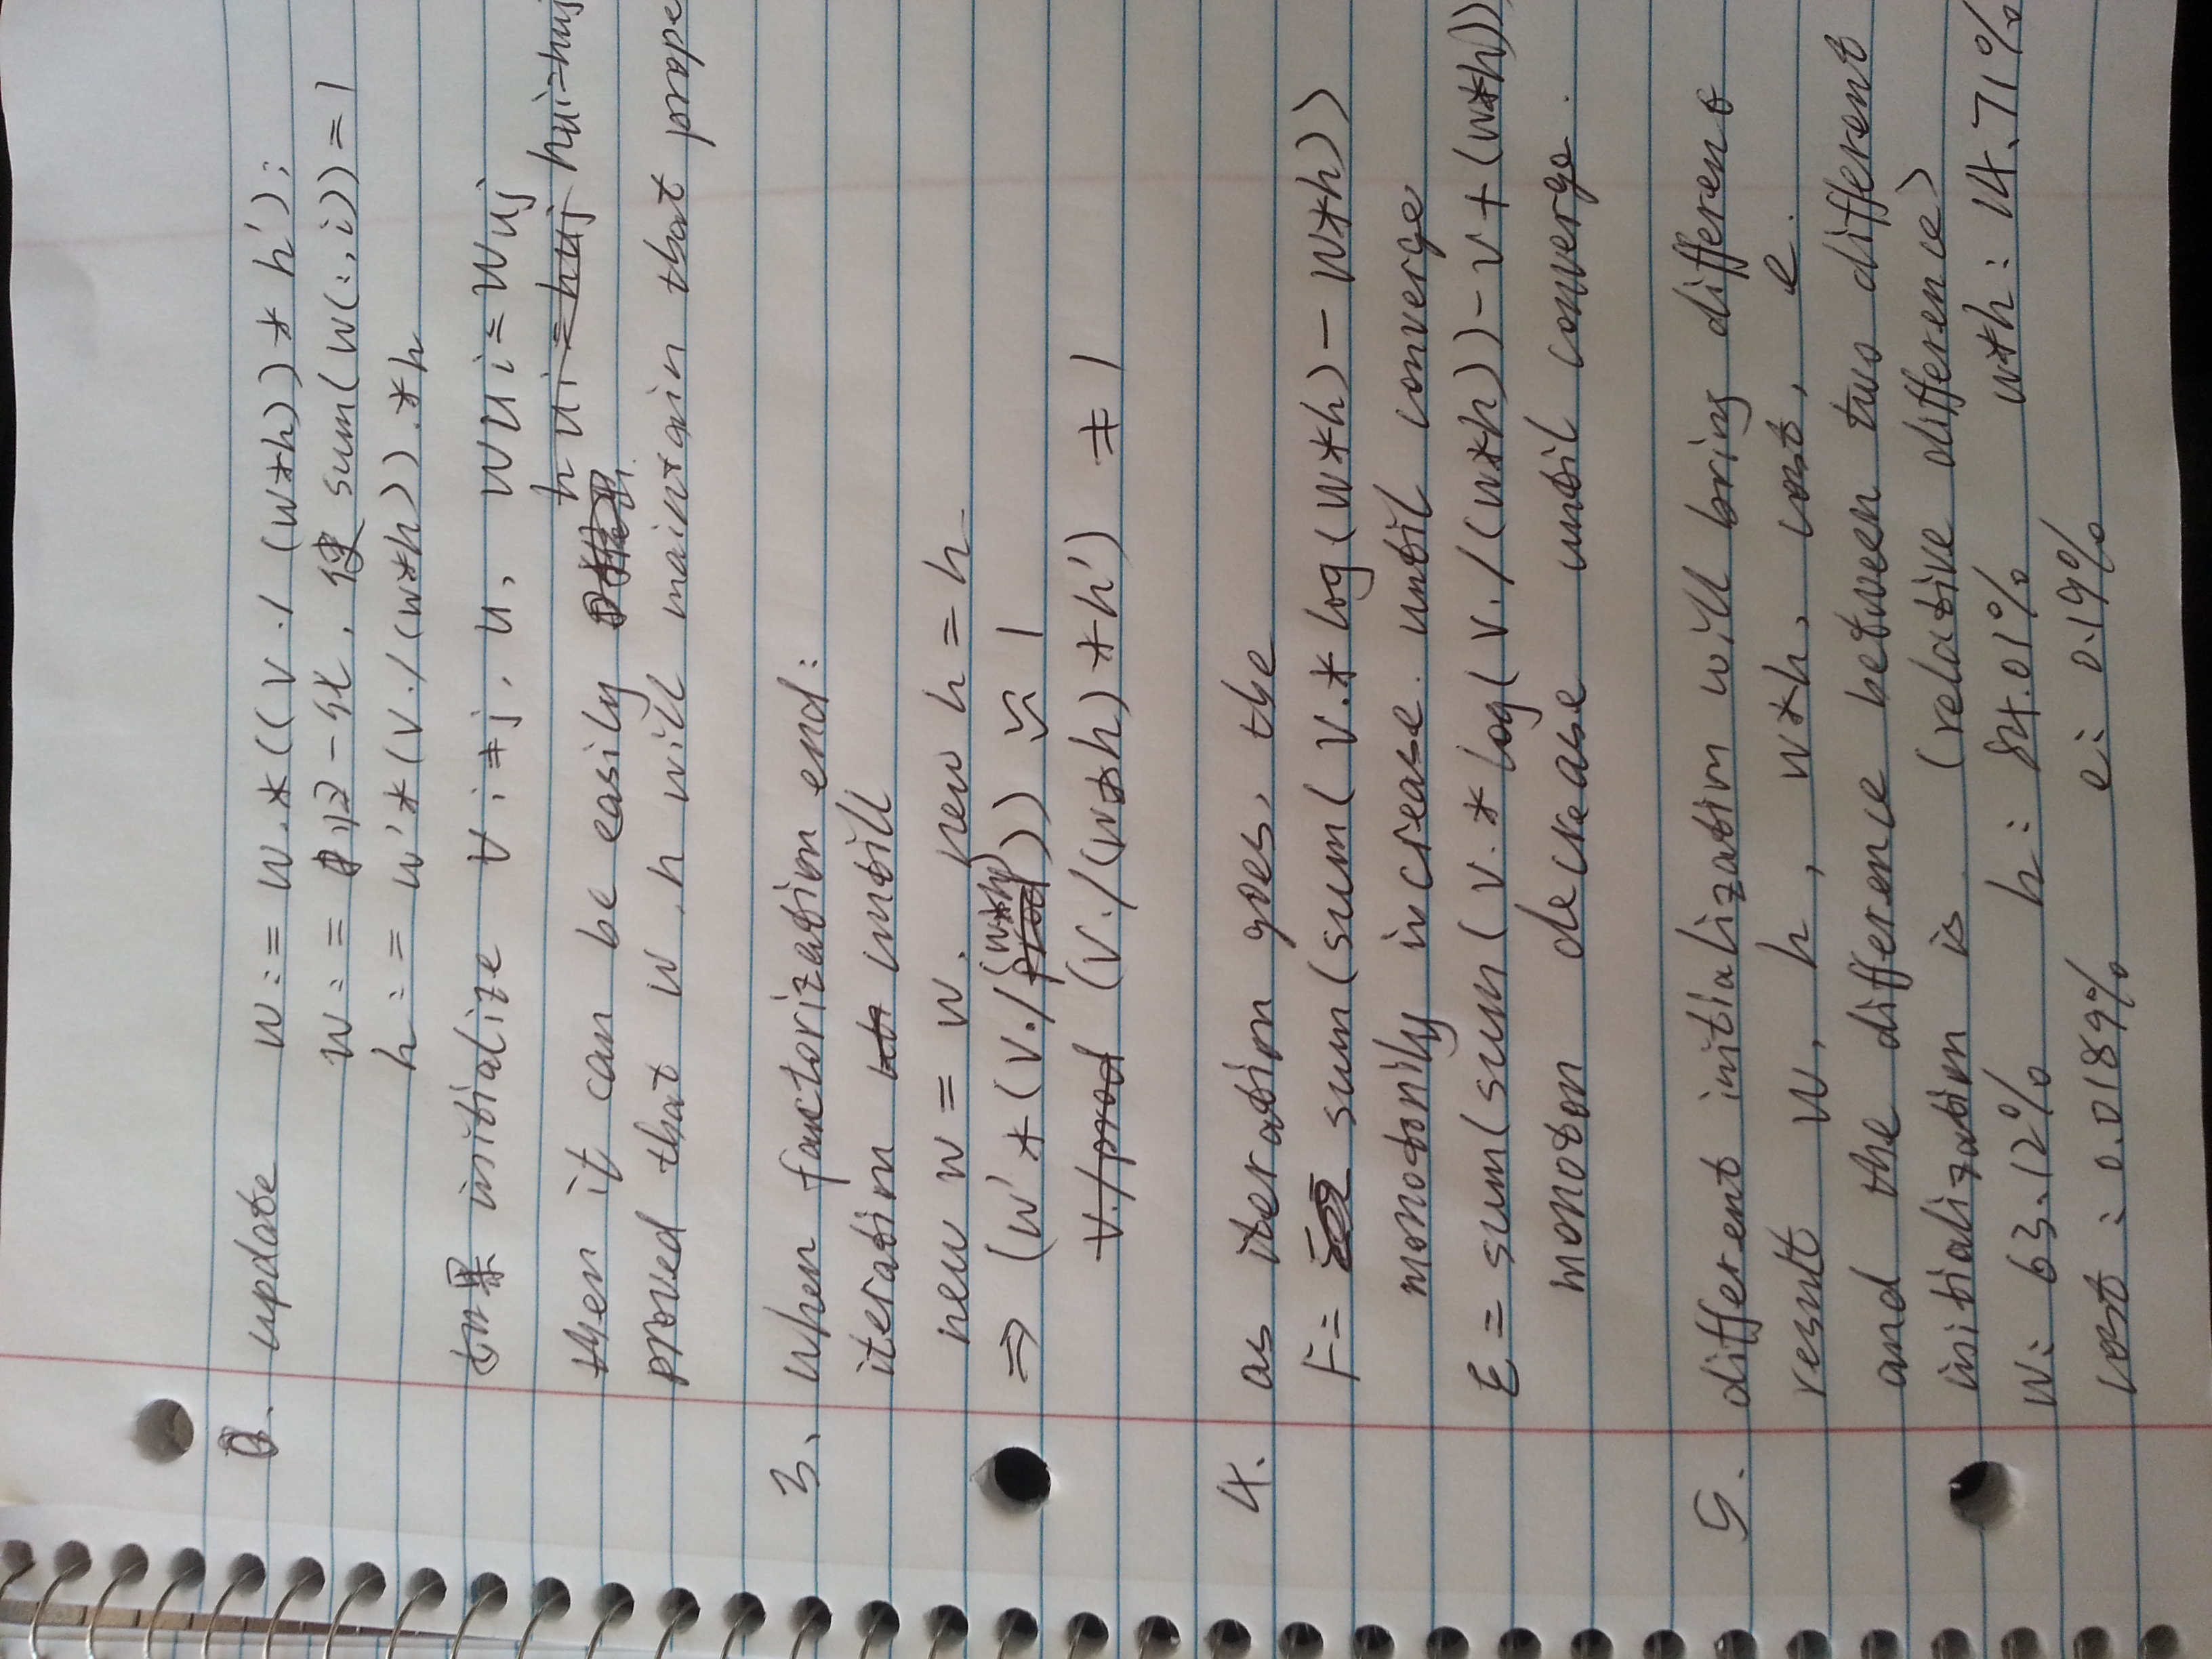 update w := w.*((v./(w*h))*h');
w := 归一化, 使 sum(w(:,i))=1
h := w'*(v./(w*h)).*h
如果 initialize ∀ i≠j, u, wui=wuj
hui=huj hui=huj
then it can be easily
proved that w, h will maintain that prope
3. when faxctorization end:
iteration untill
new w = w, new h = h
(w*h)
⇒ (w'*(v./prod)) ≈ 1
v./prod (v./(w*h)*h') ≠ 1
4. as iteration goes, the
F= sum(sum(v.*log(w*h)-w*h))
monotonily increase. until converge
E = sum(sum(v.*log(v./(w*h))-v+(w*h))
monoton decrease until converge.
5. different initialization will bring different
result w, h, w*h, cost, e.
and the difference between two different
initialization is (relative difference)
w: 63.12% h: 84.01% w*h: 14.71%
cost: 0.0189% e: 0.19%